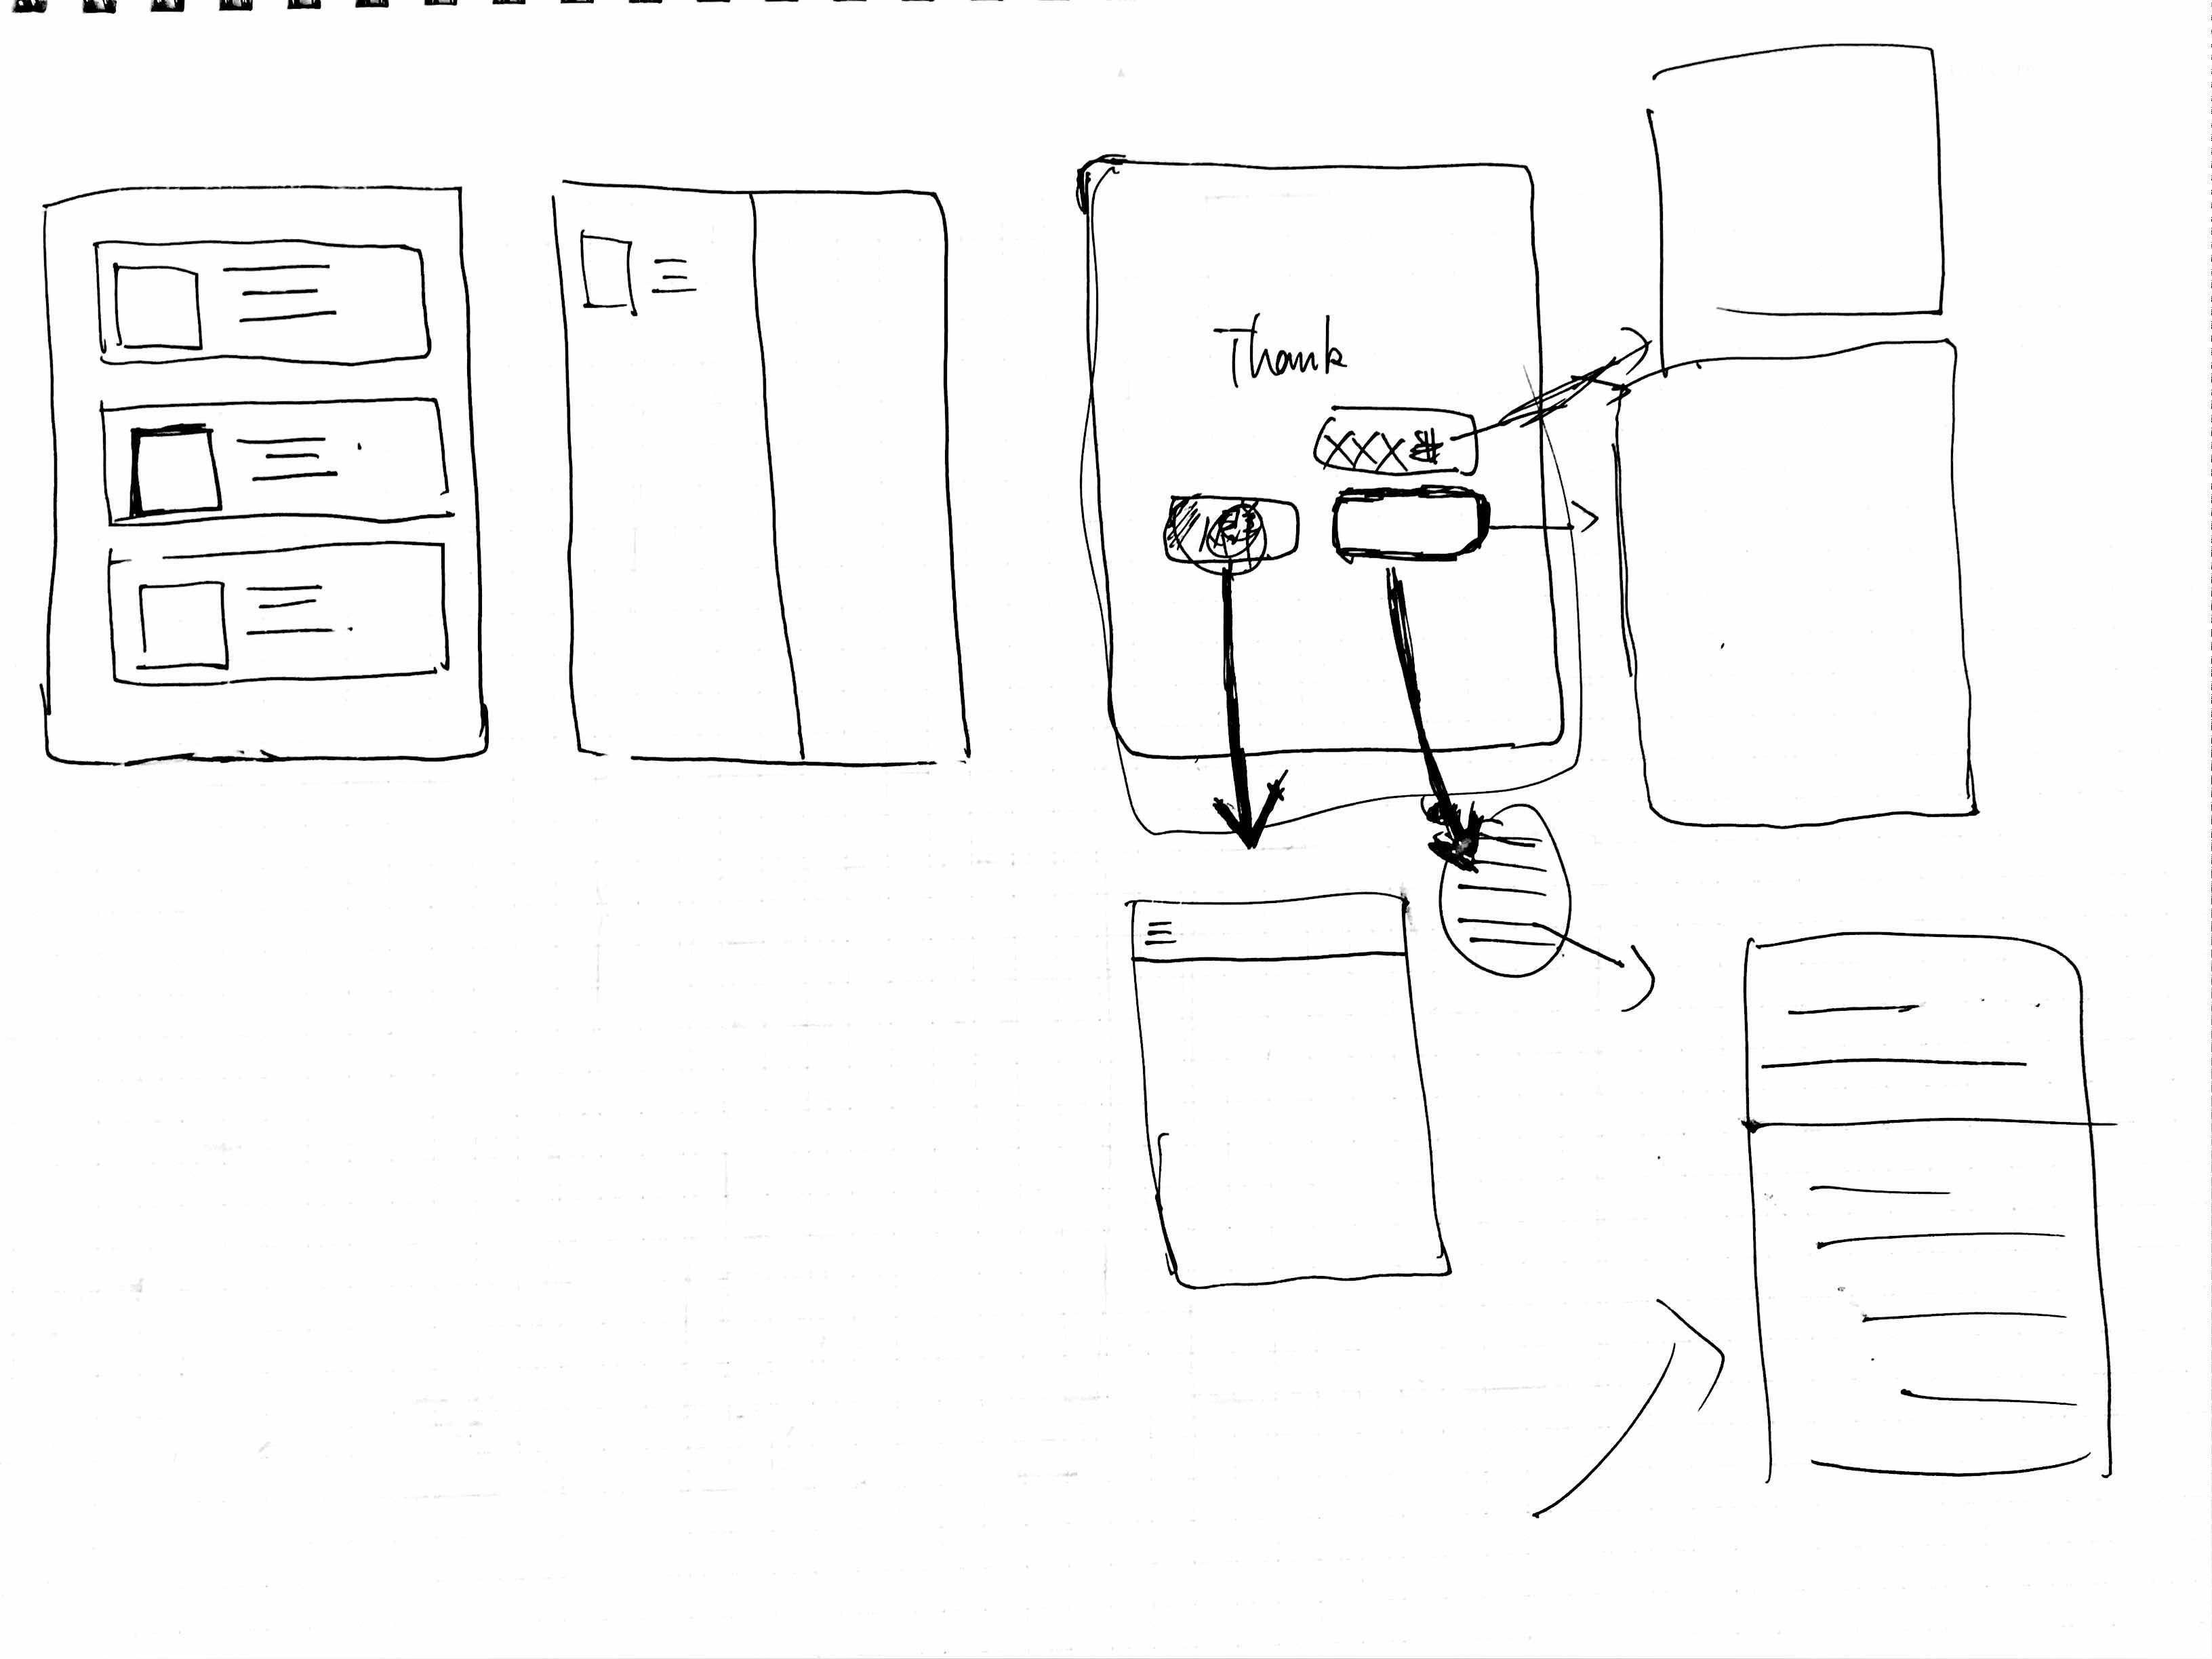 Thank
XXX